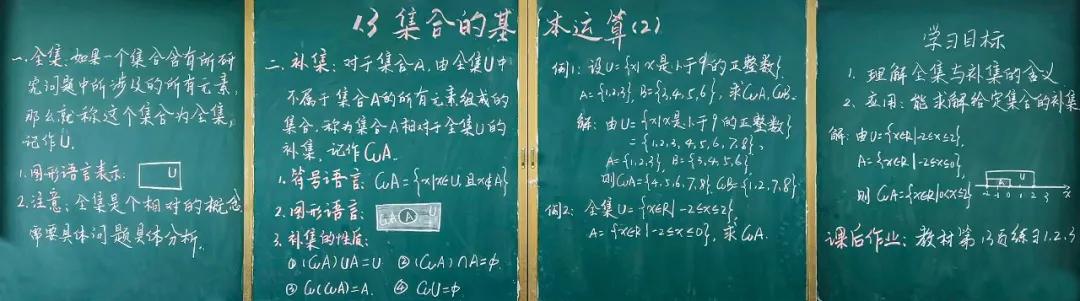 1.3 集合的基本运算(2)
一. 全集: 如果一个集合含有所研
究问题中所涉及的所有元素,
那么就称这个集合为全集,
记作U.
1. 图形语言表示:
U
2. 注意: 全集是个相对的概念
需要具体问题具体分析.
二. 补集: 对于集合A, 由全集U中
不属于集合A的所有元素组成的
集合, 称为集合A相对于全集U的
补集, 记作∁UA.
1. 符号语言: ∁UA={x|x∈U, 且x∉A}
2. 图形语言:
∁UA A U
3. 补集的性质:
① (∁UA)∪A=U ② (∁UA)∩A=∅
③ ∁U(∁UA)=A. ④ ∁UU=∅
例1: 设U={x|x是小于9的正整数}
A={1,2,3}, B={3,4,5,6}, 求∁UA, ∁UB.
解: 由U={x|x是小于9的正整数}
={1,2,3,4,5,6,7,8},
A={1,2,3}, B={3,4,5,6}
则∁UA={4,5,6,7,8} ∁UB={1,2,7,8}
例2: 全集U={x∈R|-2≤x≤2},
A={x∈R|-2≤x≤0}, 求∁UA.
学习目标
1. 理解全集与补集的含义
2. 应用: 能求解给定集合的补集
解: 由U={x∈R|-2≤x≤2},
A={x∈R|-2≤x≤0},
则 ∁UA={x∈R|0<x≤2}
课后作业: 教材第13页练习1.2.3